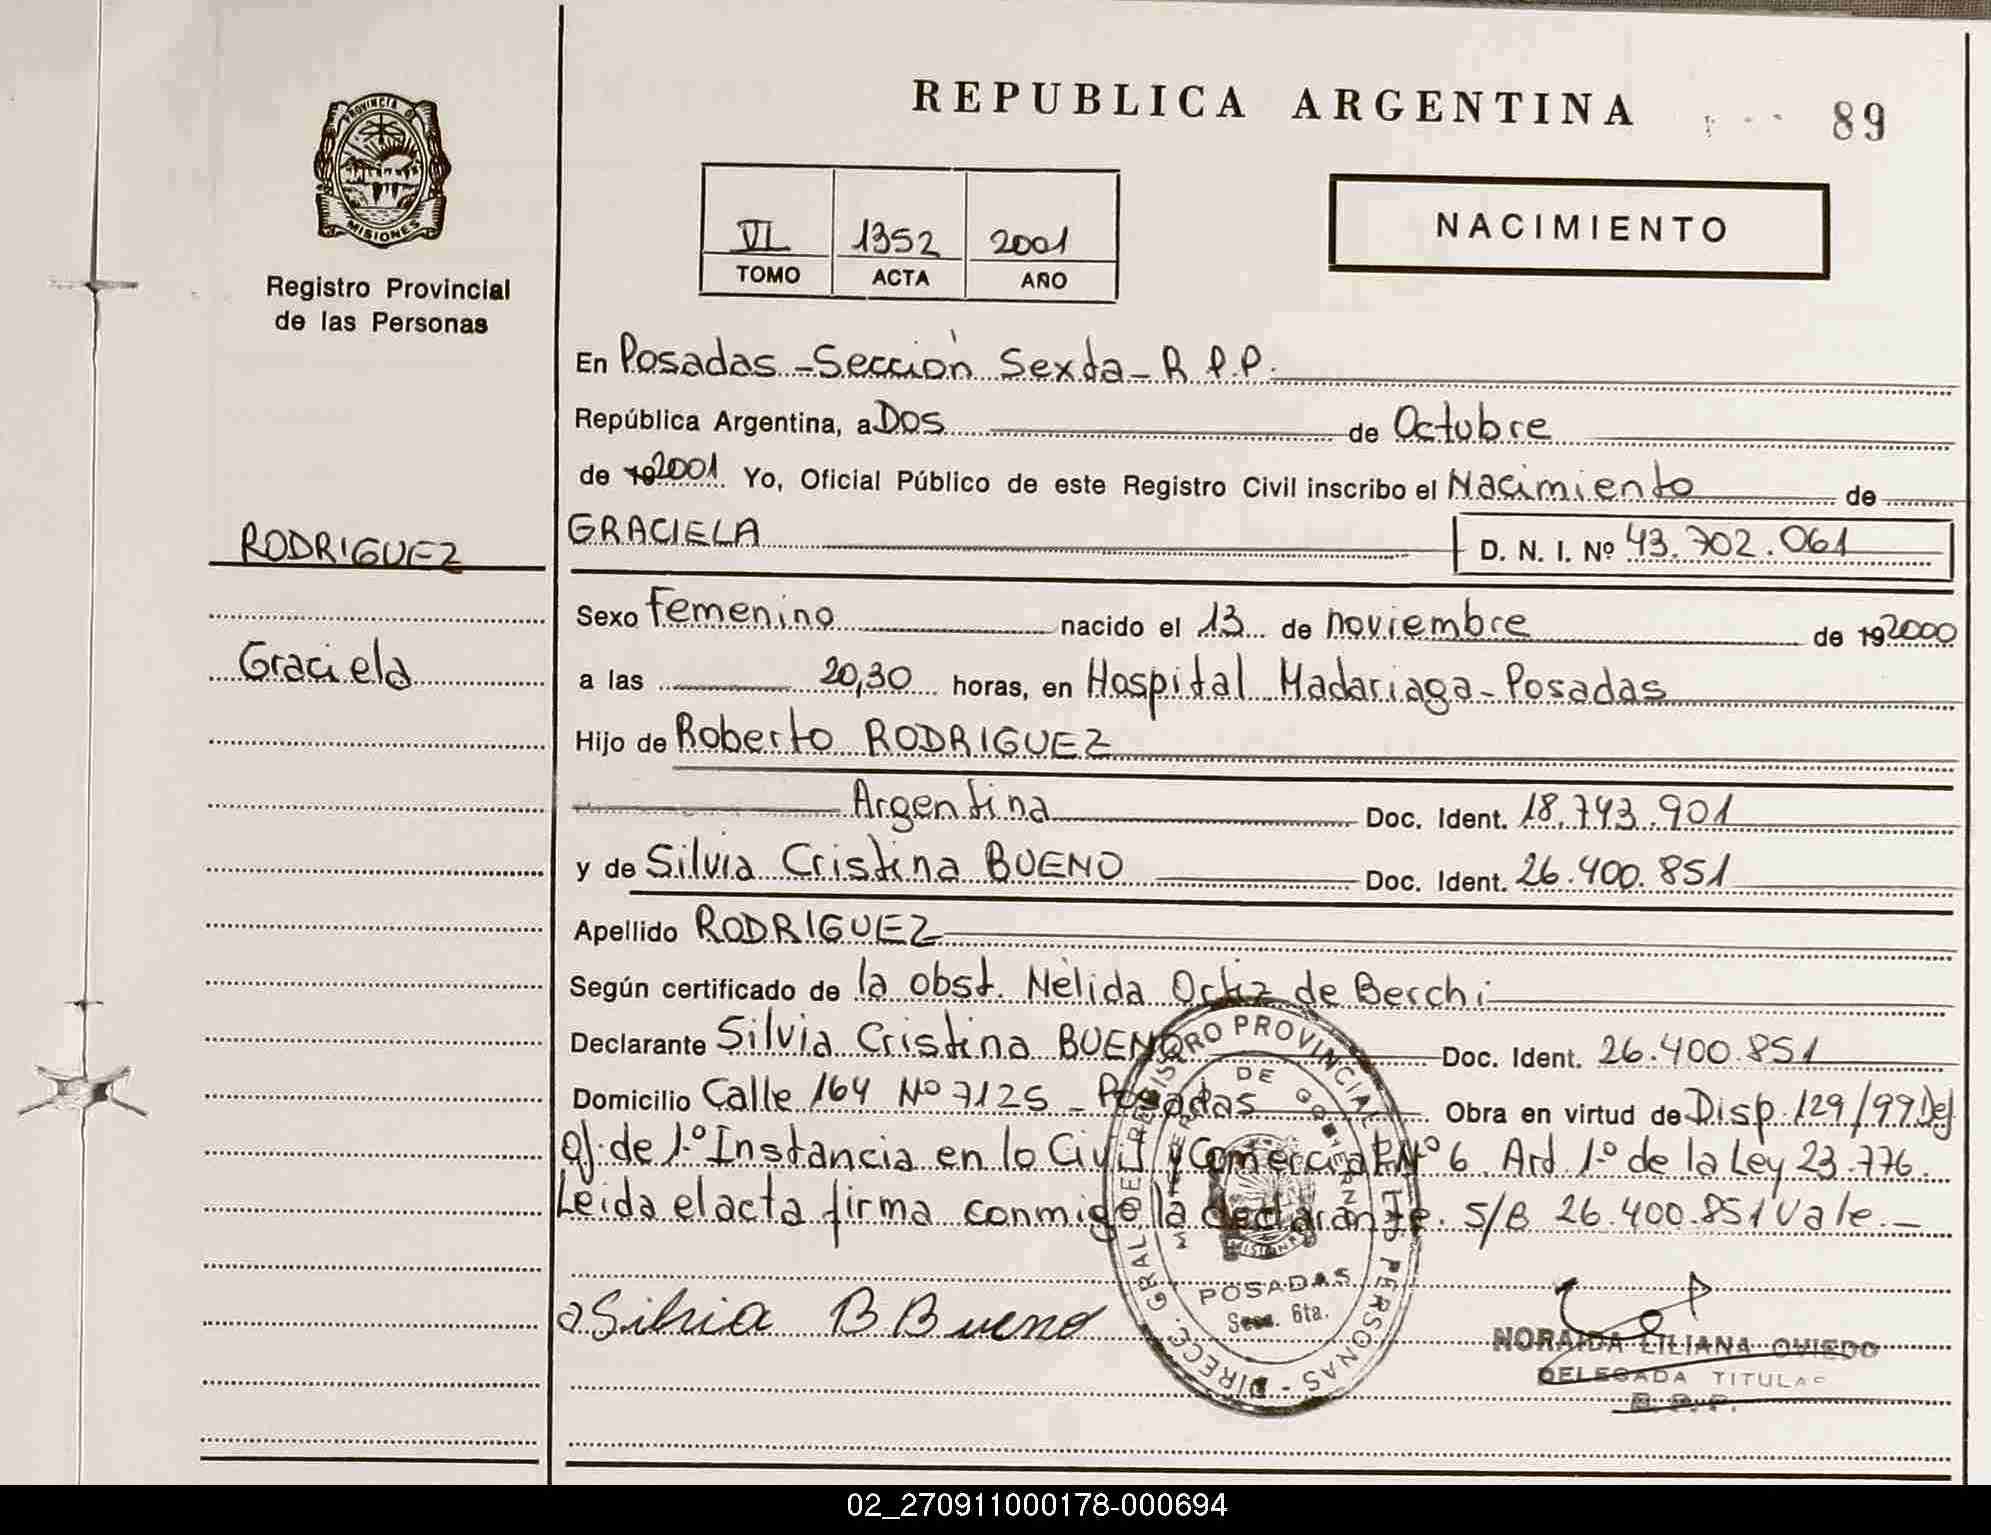 REPUBLICA ARGENTINA
89
PROVINCIA DE
MISIONES
Registro Provincial
de las Personas
VI 1352 2001
TOMO ACTA AÑO
NACIMIENTO
En Posadas - Sección Sexta - R.P.P.
República Argentina, a Dos de Octubre
de 19 2001. Yo, Oficial Público de este Registro Civil inscribo el Nacimiento de
RODRIGUEZ
GRACIELA D. N. I. Nº 43.702.061
Sexo Femenino nacido el 13 de noviembre de 19 2000
Graciela
a las 20,30 horas, en Hospital Madariaga - Posadas
Hijo de Roberto RODRIGUEZ
Argentina Doc. Ident. 18.743.901
y de Silvia Cristina BUENO Doc. Ident. 26.400.851
Apellido RODRIGUEZ
Según certificado de la obst. Nélida Ortiz de Berchi
Declarante Silvia Cristina BUENO Doc. Ident. 26.400.851
Domicilio Calle 164 Nº 7125 - Posadas Obra en virtud de Disp. 129/99 Def
of. de 1º Instancia en lo Civil y Comercial Nº 6. Art 1º de la Ley 23.776.
Leida el acta firma conmigo la declarante. S/B 26.400.851 Vale.-
DIRECC. GRAL. DEL REGISTRO PROVINCIAL DE LAS PERSONAS
DE GOBIERNO
MISIONES
POSADAS
Secc. 6ta.
Silvia B Bueno
NORAIDA LILIANA OVIEDO
DELEGADA TITULAR
R. P. P.
02_270911000178-000694